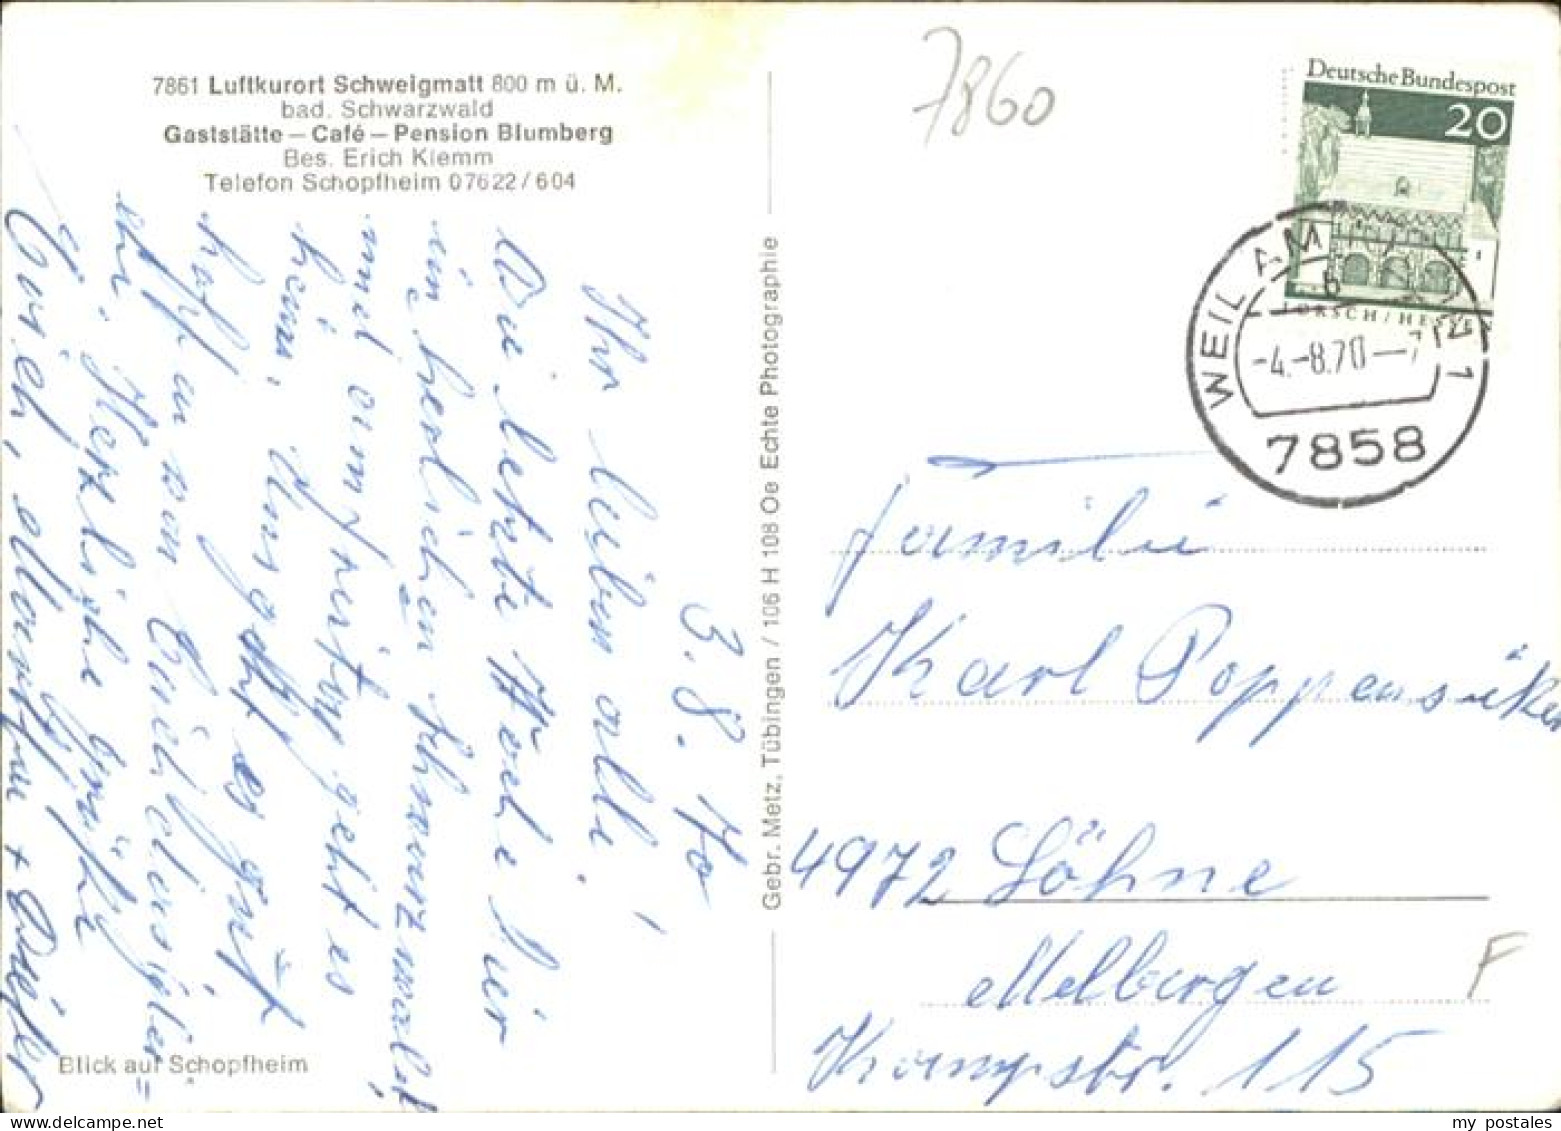 7861 Luftkurort Schweigmatt 800 m ü. M.
bad. Schwarzwald
Gaststätte – Café – Pension Blumberg
Bes. Erich Klemm
Telefon Schopfheim 07622/604
3.8.70
Ihr lieben alle!
Die letzte Woche hier
im herrlichen Schwarzwald
und am freitag geht es
heim. Uns geht es gut
hoffen von Euch
ein. Herzliche Grüße
Eurer, Martha + Dieter
Blick auf Schopfheim
Gebr. Metz, Tübingen / 106 H 108 Oe Echte Photographie
7860
Deutsche Bundespost
20
LORSCH/HESSEN
WEIL AM RHEIN 1
b
-4.-8.70—7
7858
Familie
Karl Poppensieker
4972 Löhne
Melbergen
Kampstr. 115
F
my postales